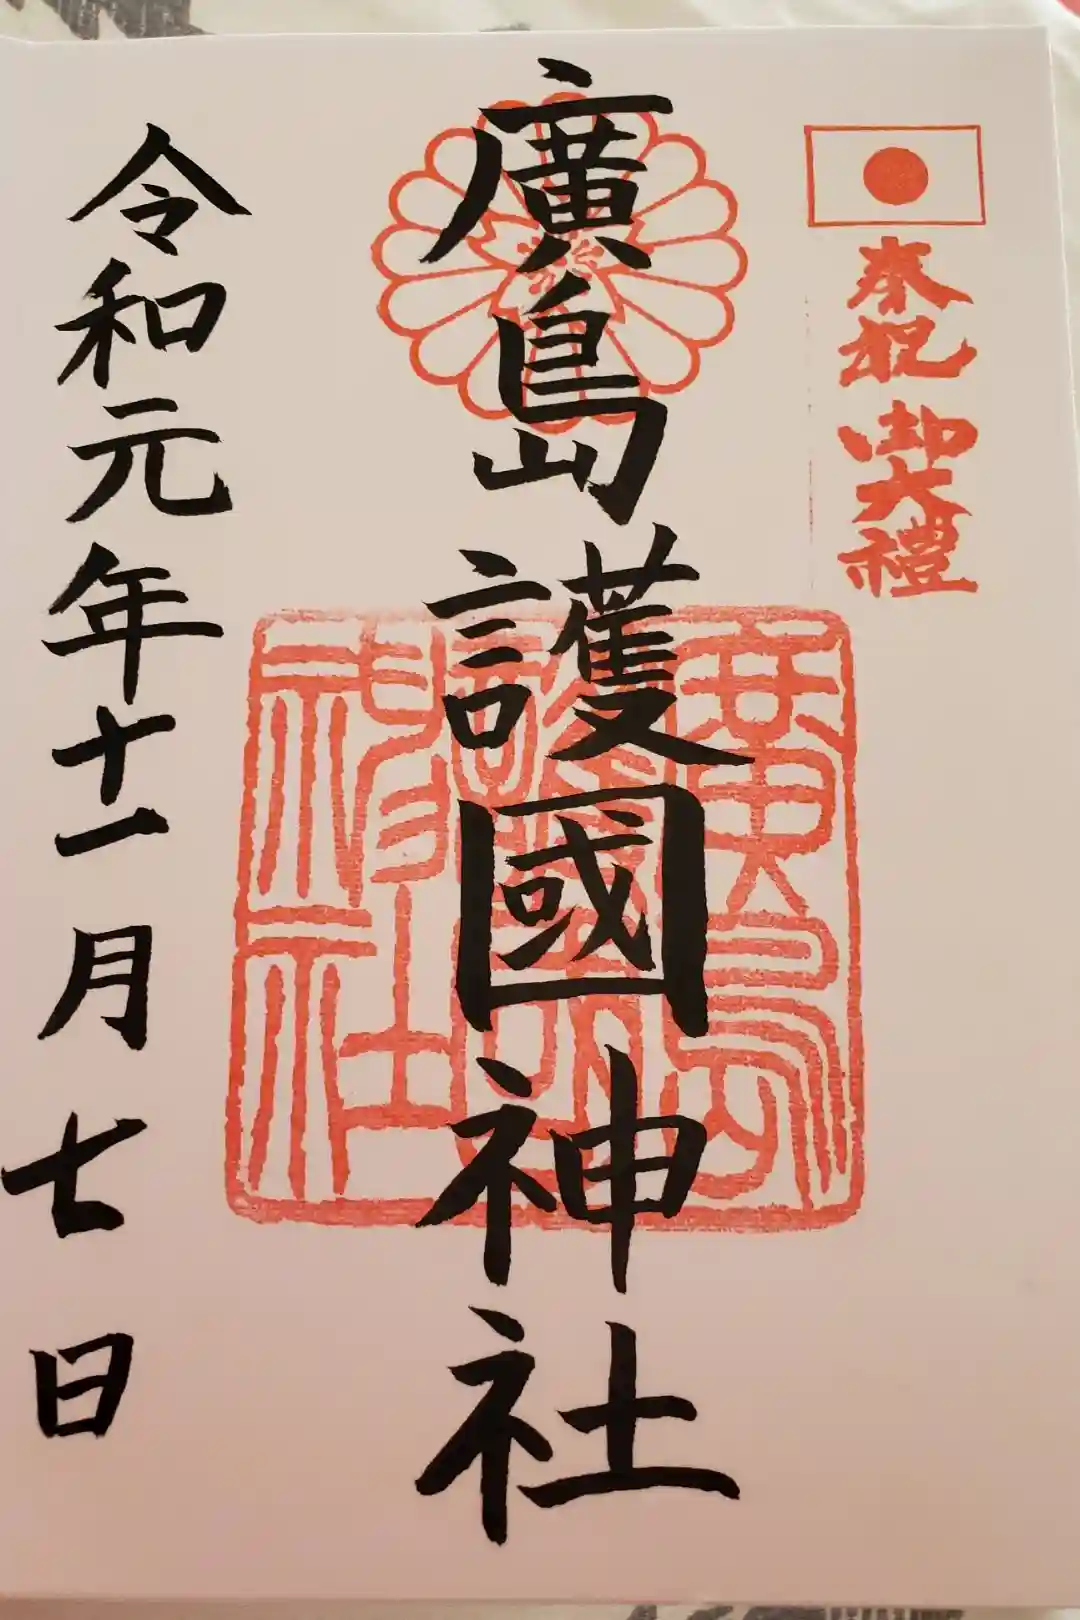 奉祝 御大禮
廣島護國神社
廣島護國神社
令和元年十一月七日